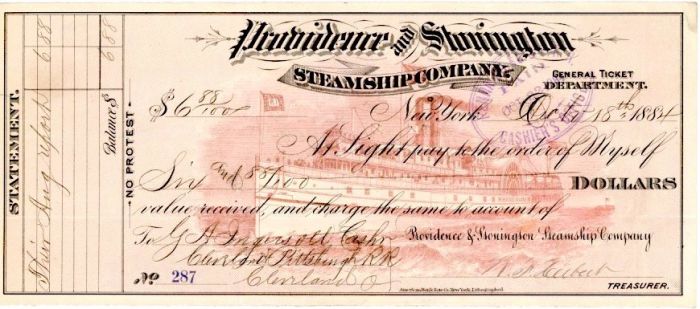 STATEMENT.
Their Aug report 6.88
Balance $ 6.88
NO PROTEST
Providence and Stonington
STEAMSHIP COMPANY.
GENERAL TICKET
DEPARTMENT.
PAID
CASHIER'S
$6 88/100
New York Oct 18th 1884
At Sight pay to the order of Myself
Six and 88/100 DOLLARS
value received, and charge the same to account of
To G. A. Ingersoll Cashr Providence & Stonington Steamship Company
Cleveland Pittsburgh RR
Cleveland O
No 287
TREASURER.